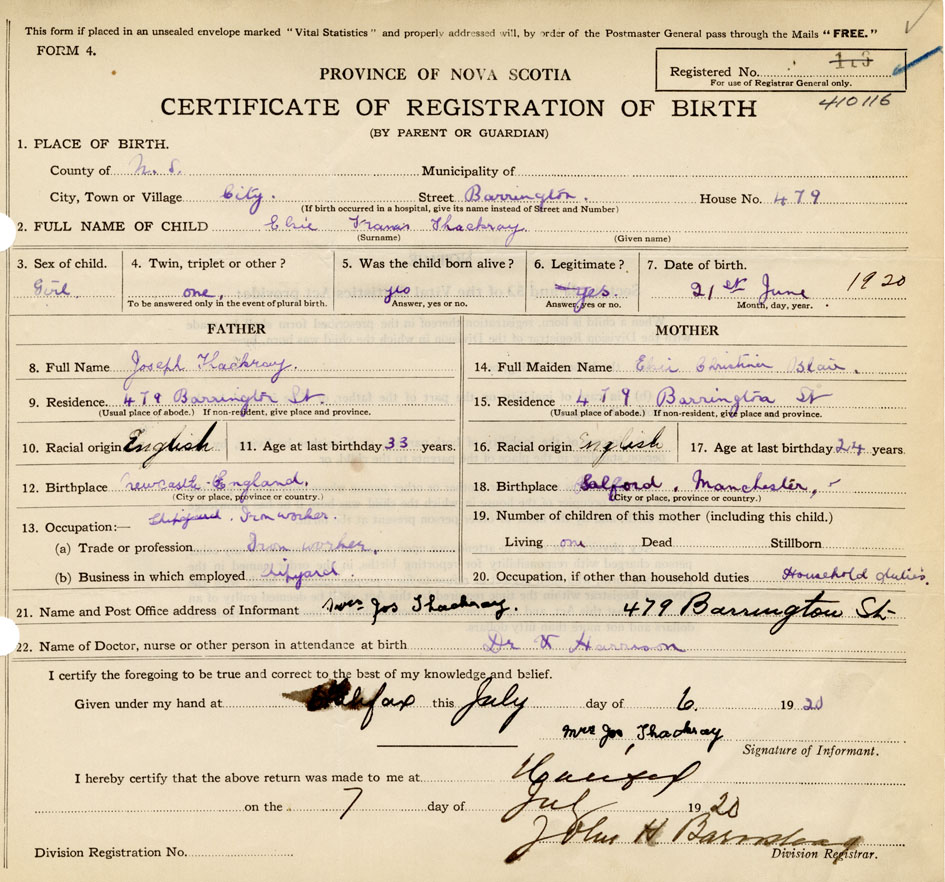 This form if placed in an unsealed envelope marked "Vital Statistics" and properly addressed will, by order of the Postmaster General pass through the Mails "FREE."
FORM 4.
PROVINCE OF NOVA SCOTIA
Registered No. 113
For use of Registrar General only.
410116
CERTIFICATE OF REGISTRATION OF BIRTH
(BY PARENT OR GUARDIAN)
1. PLACE OF BIRTH.
County of N. S. Municipality of
City, Town or Village City. Street Barrington. House No. 479
(If birth occurred in a hospital, give its name instead of Street and Number)
2. FULL NAME OF CHILD Elsie Thackray
(Surname) (Given name)
3. Sex of child. 4. Twin, triplet or other? 5. Was the child born alive? 6. Legitimate? 7. Date of birth.
Girl. one, yes yes. 21st June 1920
To be answered only in the event of plural birth. Answer, yes or no. Answer, yes or no. Month, day, year.
FATHER MOTHER
8. Full Name Joseph Thackray. 14. Full Maiden Name Elsie Blair.
9. Residence. 479 Barrington St. 15. Residence 479 Barrington St
(Usual place of abode.) If non-resident, give place and province. (Usual place of abode.) If non-resident, give place and province.
10. Racial origin English 11. Age at last birthday 33 years. 16. Racial origin English 17. Age at last birthday 24 years
12. Birthplace Newcastle-England. 18. Birthplace Salford, Manchester,-
(City or place, province or country.) (City or place, province or country.)
13. Occupation:— Iron worker. 19. Number of children of this mother (including this child.)
(a) Trade or profession Iron worker. Living one Dead Stillborn
(b) Business in which employed 20. Occupation, if other than household duties Household duties.
21. Name and Post Office address of Informant Mrs Jos Thackray. 479 Barrington St-
22. Name of Doctor, nurse or other person in attendance at birth Dr Harrison
I certify the foregoing to be true and correct to the best of my knowledge and belief.
Given under my hand at Halifax this July day of 6. 1920
Mrs Jos, Thackray
Signature of Informant.
I hereby certify that the above return was made to me at Halifax
on the 7 day of July 1920
John H
Division Registration No. Division Registrar.